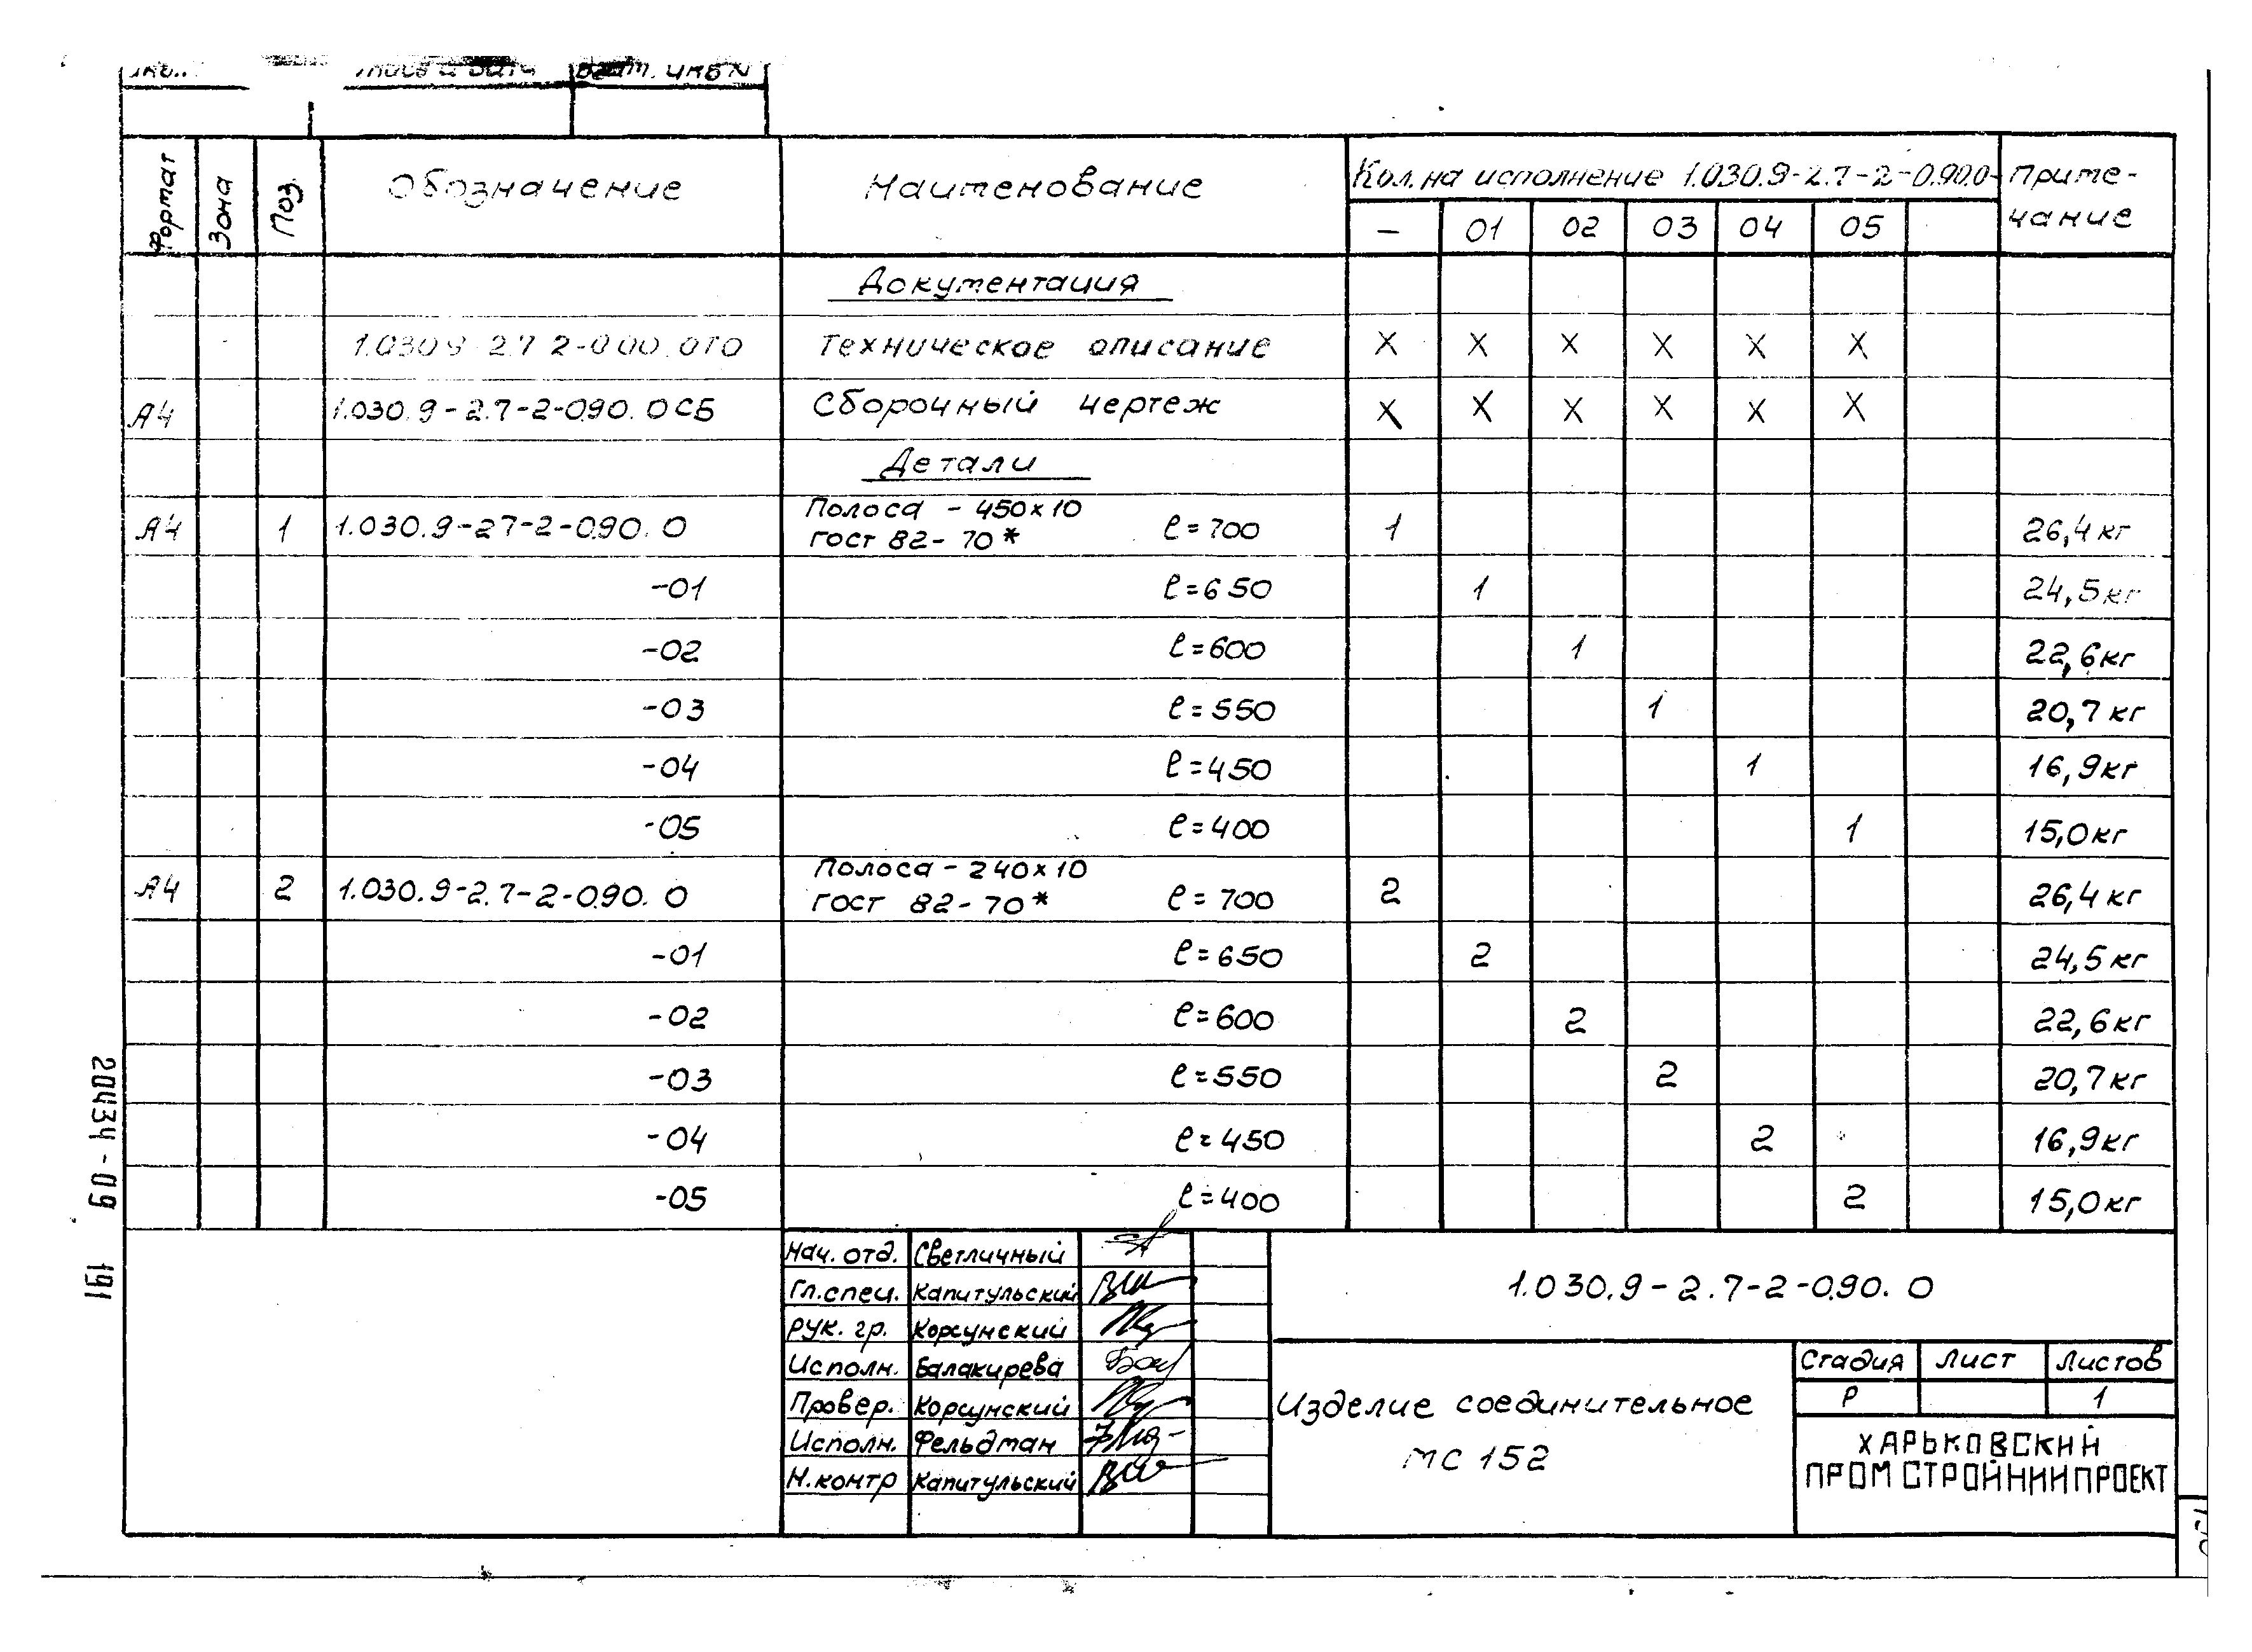 Взам. инв N
Формат Зона Поз. Обозначение Наименование Кол. на исполнение 1.030.9-2.7-2-090.0- Приме-
чание
— 01 02 03 04 05
Документация
1.030.9-2.7 2-000.0ТО Техническое описание X X X X X X
А4 1.030.9-2.7-2-090.0СБ Сборочный чертеж X X X X X X
Детали
А4 1 1.030.9-27-2-090.0 Полоса - 450х10
ГОСТ 82-70* ℓ=700 1 26,4кг
-01 ℓ=650 1 24,5кг
-02 ℓ=600 1 22,6кг
-03 ℓ=550 1 20,7кг
-04 ℓ=450 1 16,9кг
-05 ℓ=400 1 15,0кг
А4 2 1.030.9-2.7-2-090.0 Полоса - 240х10
ГОСТ 82-70* ℓ=700 2 26,4кг
-01 ℓ=650 2 24,5кг
-02 ℓ=600 2 22,6кг
-03 ℓ=550 2 20,7кг
-04 ℓ=450 2 16,9кг
-05 ℓ=400 2 15,0кг
20434-09 191
Нач. отд. Светличный
Гл. спец. Капитульский
Рук. гр. Корсунский
Исполн. Балакирева
Провер. Корсунский
Исполн. Фельдман
Н.контр Капитульский
1.030.9-2.7-2-090.0
Изделие соединительное
МС 152
Стадия Лист Листов
Р 1
ХАРЬКОВСКИЙ
ПРОМСТРОЙНИИПРОЕКТ